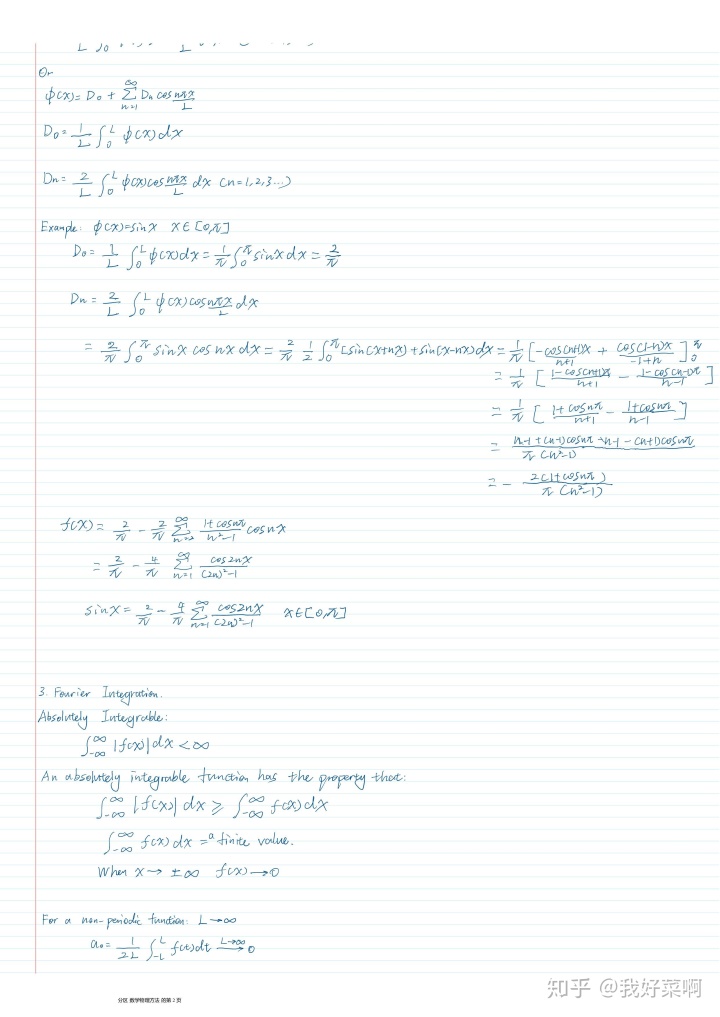 Or
φ(x) = D₀ + ∑_{n=1}^{∞} Dₙ cos nπx/L
D₀ = 1/L ∫₀^L φ(x)dx
Dₙ = 2/L ∫₀^L φ(x)cos nπx/L dx (n=1,2,3...)
Example: φ(x)=sinx x∈[0,π]
D₀ = 1/L ∫₀^L φ(x)dx = 1/π ∫₀^π sinx dx = 2/π
Dₙ = 2/L ∫₀^L φ(x)cos nπx/L dx
= 2/π ∫₀^π sinx cosnx dx = 2/π 1/2 ∫₀^π [sin(x+nx)+sin(x-nx)]dx = 1/π [ -cos(n+1)x/n+1 + cos(1-n)x/-1+n ]₀^π
= 1/π [ 1-cos(n+1)π/n+1 - 1-cos(n-1)π/n-1 ]
= 1/π [ 1+cosnπ/n+1 - 1+cosnπ/n-1 ]
= n-1+(n-1)cosnπ-n-1-(n+1)cosnπ/π(n²-1)
= - 2(1+cosnπ)/π(n²-1)
f(x) = 2/π - 2/π ∑_{n=2}^{∞} 1+cosnπ/n²-1 cosnx
= 2/π - 4/π ∑_{n=1}^{∞} cos2nx/(2n)²-1
sinx = 2/π - 4/π ∑_{n=1}^{∞} cos2nx/(2n)²-1 x∈[0,π]
3. Fourier Integration.
Absolutely Integrable:
∫_{-∞}^{∞} |f(x)|dx < ∞
An absolutely integrable function has the property that:
∫_{-∞}^{∞} |f(x)| dx ≥ ∫_{-∞}^{∞} f(x)dx
∫_{-∞}^{∞} f(x)dx = a finite value.
When x → ±∞ f(x) → 0
For a non-periodic function: L→∞
a₀ = 1/2L ∫_{-L}^{L} f(t)dt L→∞ → 0
知乎 @我好菜啊
分区 数学物理方法 的第 2 页